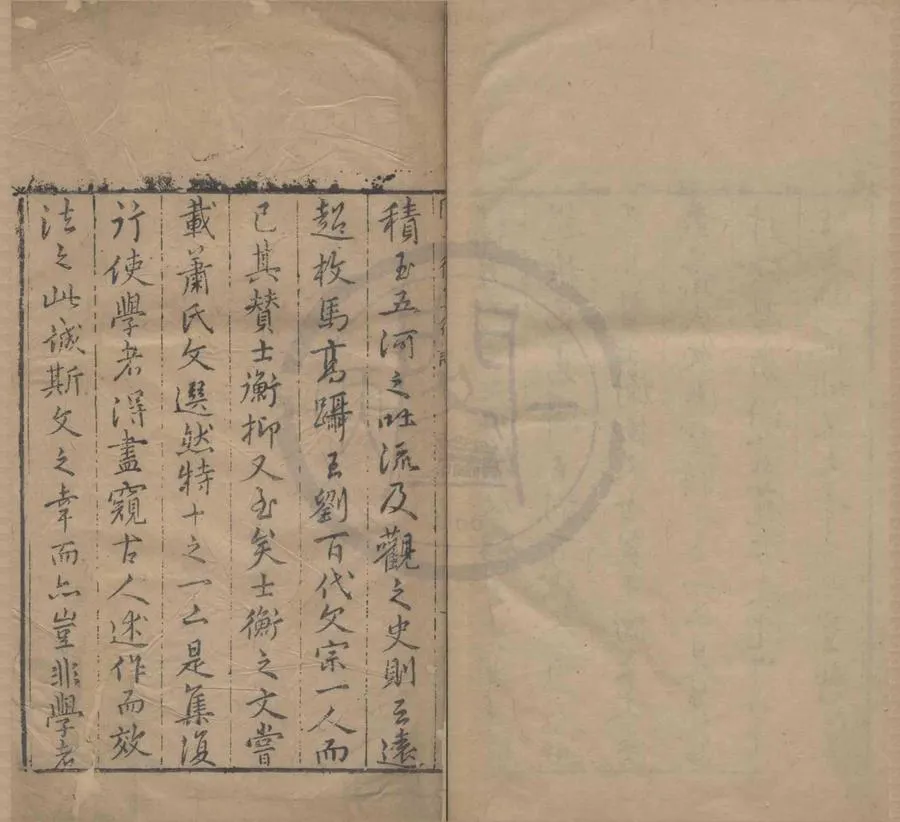 積玉五河之吐流及觀之史則云遠
超枚馬高躡王劉百代文宗一人而
已其賛士衡抑又至矣士衡之文嘗
載蕭氏文選然特十之一二是集復
行使學者得盡窺古人述作而效
法之此誠斯文之幸而亦豈非學者